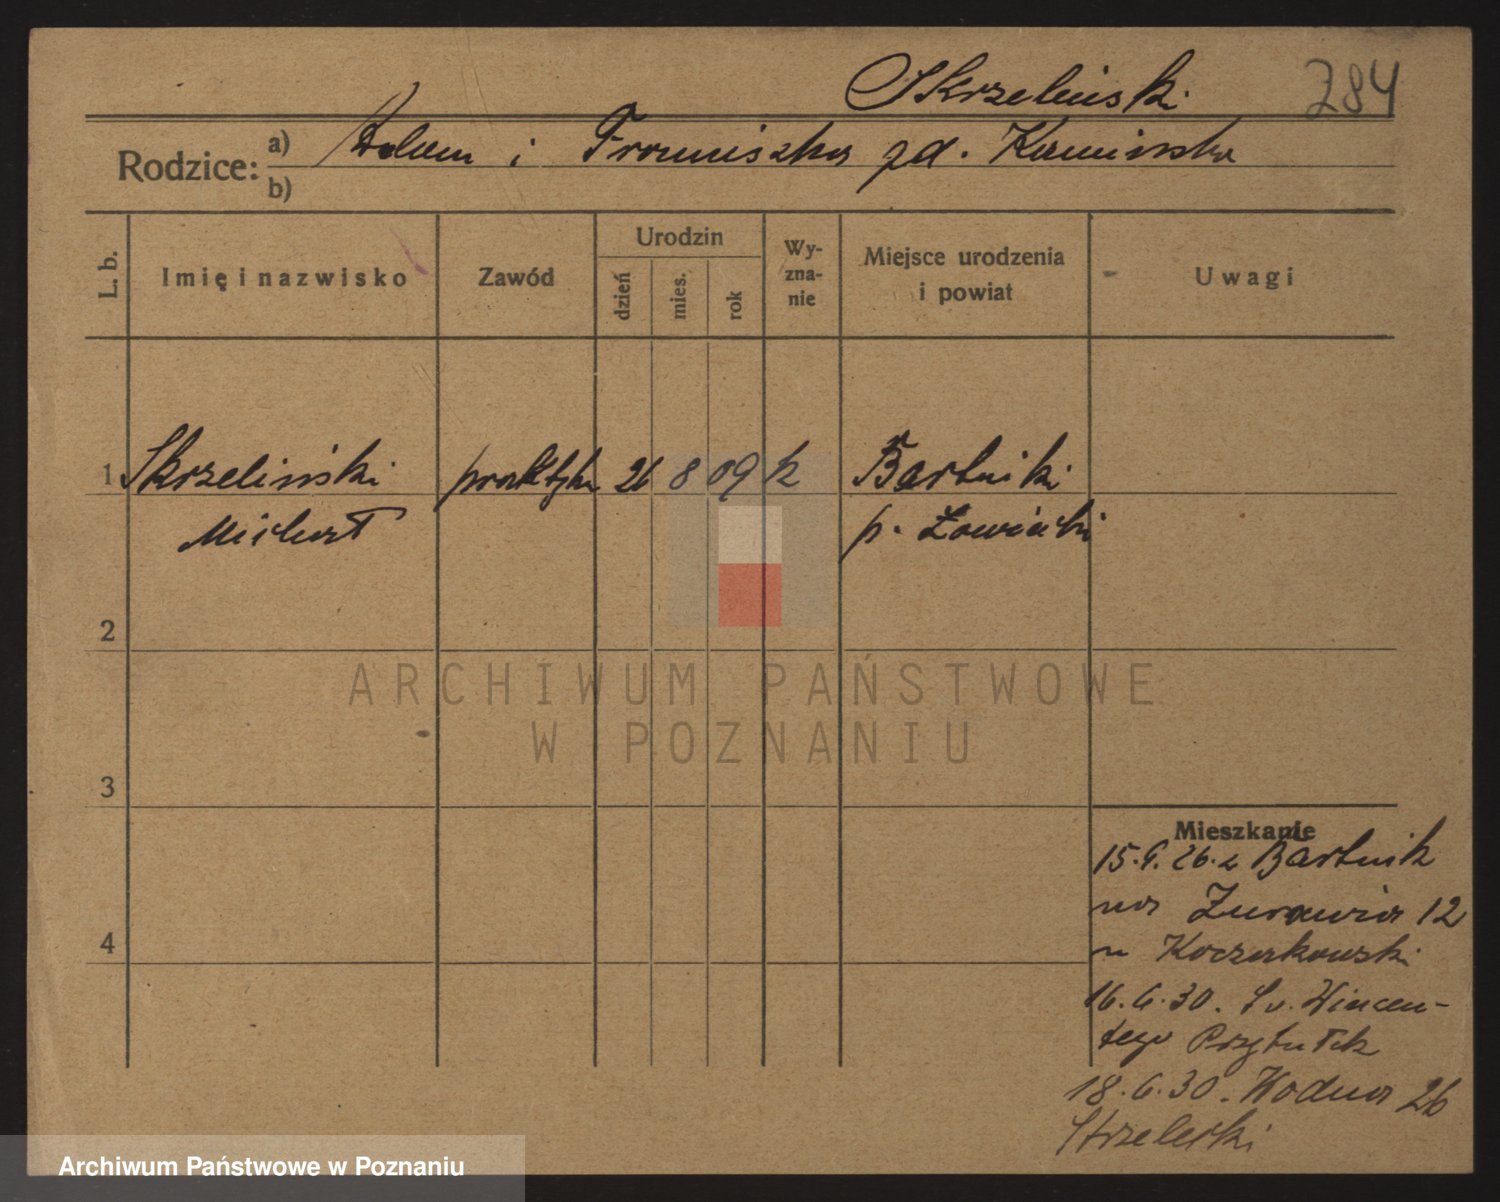 Skrzeliński 784
Rodzice: a) Adam i Franciszka zd. Kamińska
b)
L. b. Imię i nazwisko Zawód Urodzin dzień mies. rok Wy-zna-nie Miejsce urodzenia i powiat Uwagi
1 Skrzeliński praktyk 26 8 09 k Bartniki
Michał p. Łowicki
2
3
4
Mieszkanie
15.9.26. z Bartnik
na Żurawia 12
u Koczorkowski
16.6.30. Św. Wincen-
tego Przytułek
18.6.30. Wodna 26
Strzelecki
ARCHIWUM PAŃSTWOWE
W POZNANIU
Archiwum Państwowe w Poznaniu